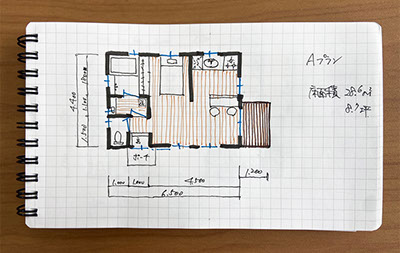 Aプラン
床面積 28.6㎡
8.7坪
4.400
1.500
ポーチ
1.000
1.000
4.500
1.200
6.500